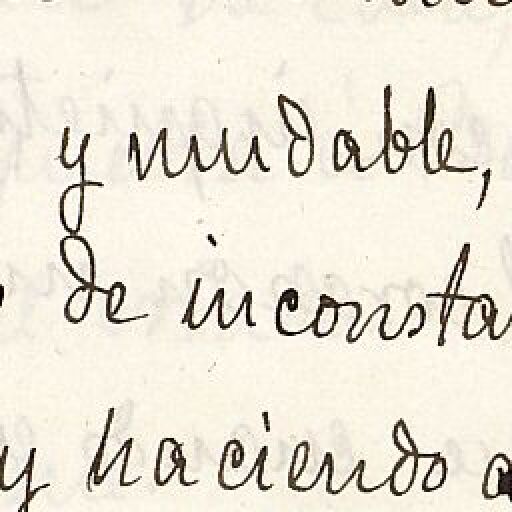 y mudable,
de inconsta
y haciendo a